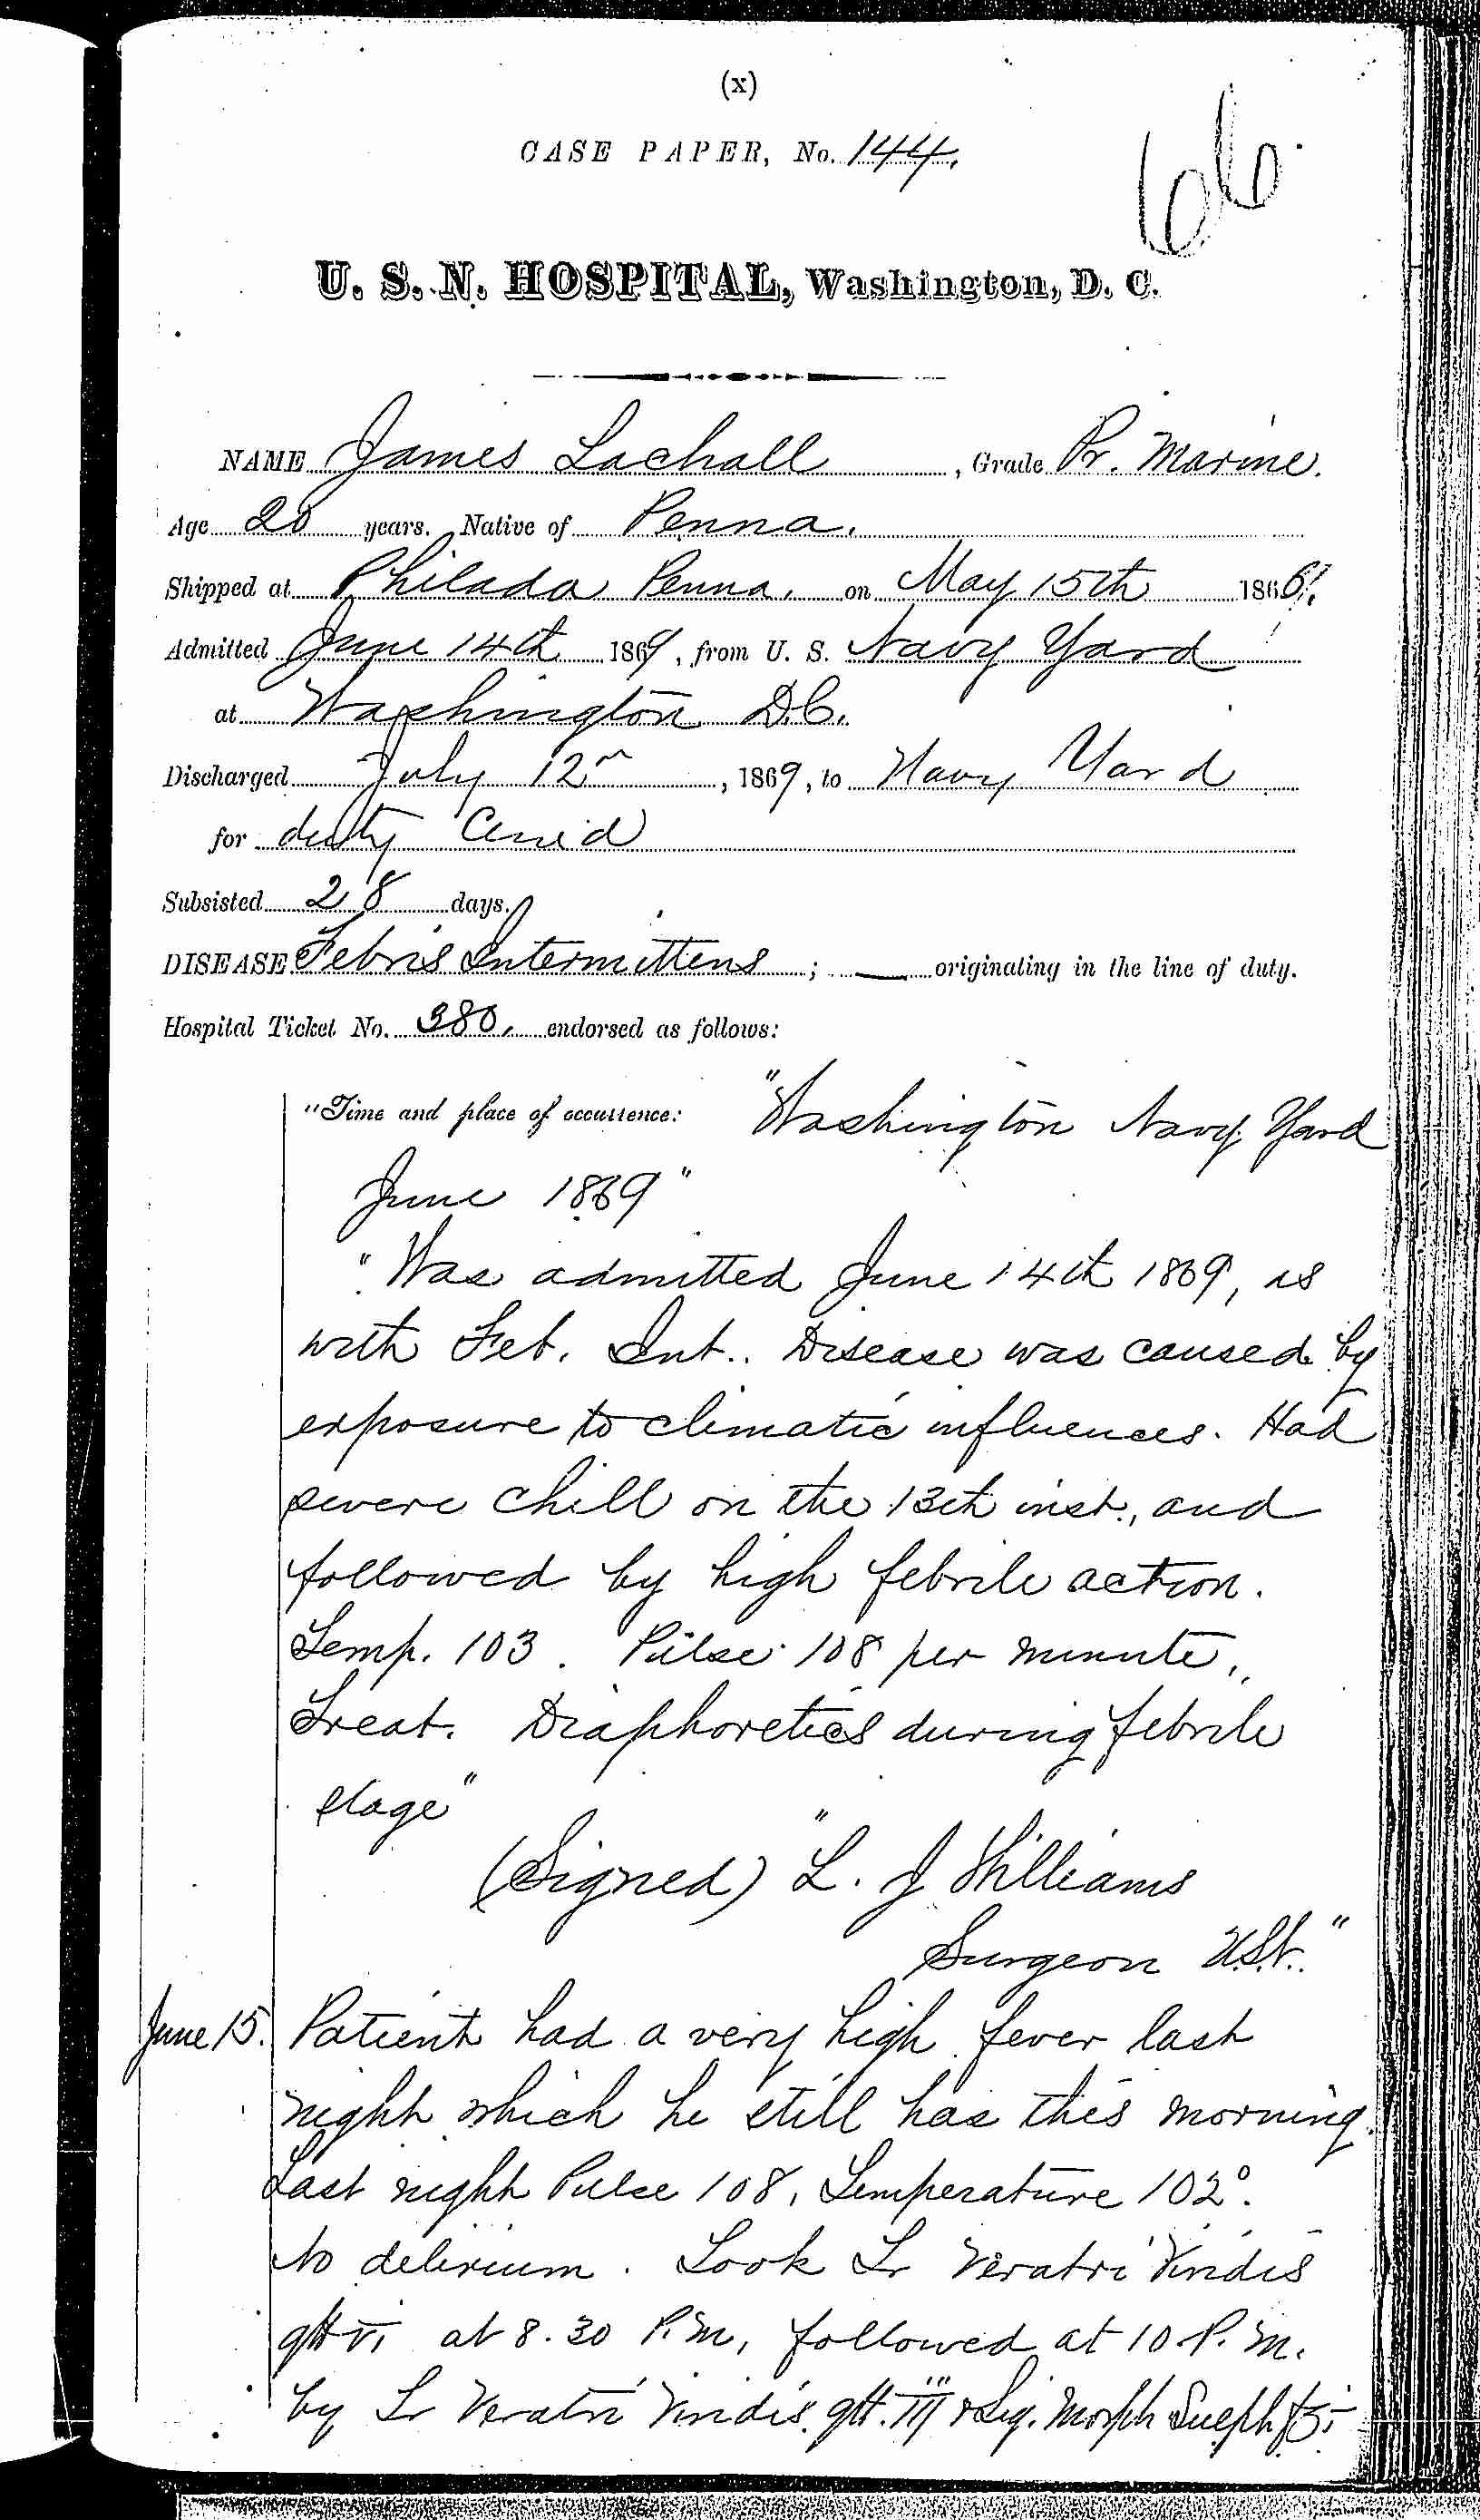 (x)
CASE PAPER, No. 144.
66
U. S. N. HOSPITAL, Washington, D. C.
NAME James Lachall, Grade Pr. Marine.
Age 20 years. Native of Penna.
Shipped at Philada Penna. on May 15th 186
Admitted June 14th 1869, from U. S. Navy Yard
at Washington D.C.
Discharged July 12, 1869, to Navy Yard
for duty
Subsisted 28 days.
DISEASE Febris Intermittens; — originating in the line of duty.
Hospital Ticket No. 380, endorsed as follows:
"Time and place of occurrence: "Washington Navy Yard
June 1869"
"Was admitted June 14th 1869, is
with Feb. Int.. Disease was caused by
exposure to climatic influences. Had
severe chill on the 13th inst., and
followed by high febrile action.
Temp. 103. Pulse 108 per minute.
Treat. Diaphoretics during febrile
stage"
(Signed) "L. J Williams
Surgeon U.S.N."
June 15. Patient had a very high fever last
night which he still has this morning.
Last night Pulse 108, Temperature 102°.
No delirium. Took Tr Veratri Viridis
gtt vi at 8.30 P.M, followed at 10 P.M.
by Tr Veratri Viridis gtt. III & Liq. Morph Sulph